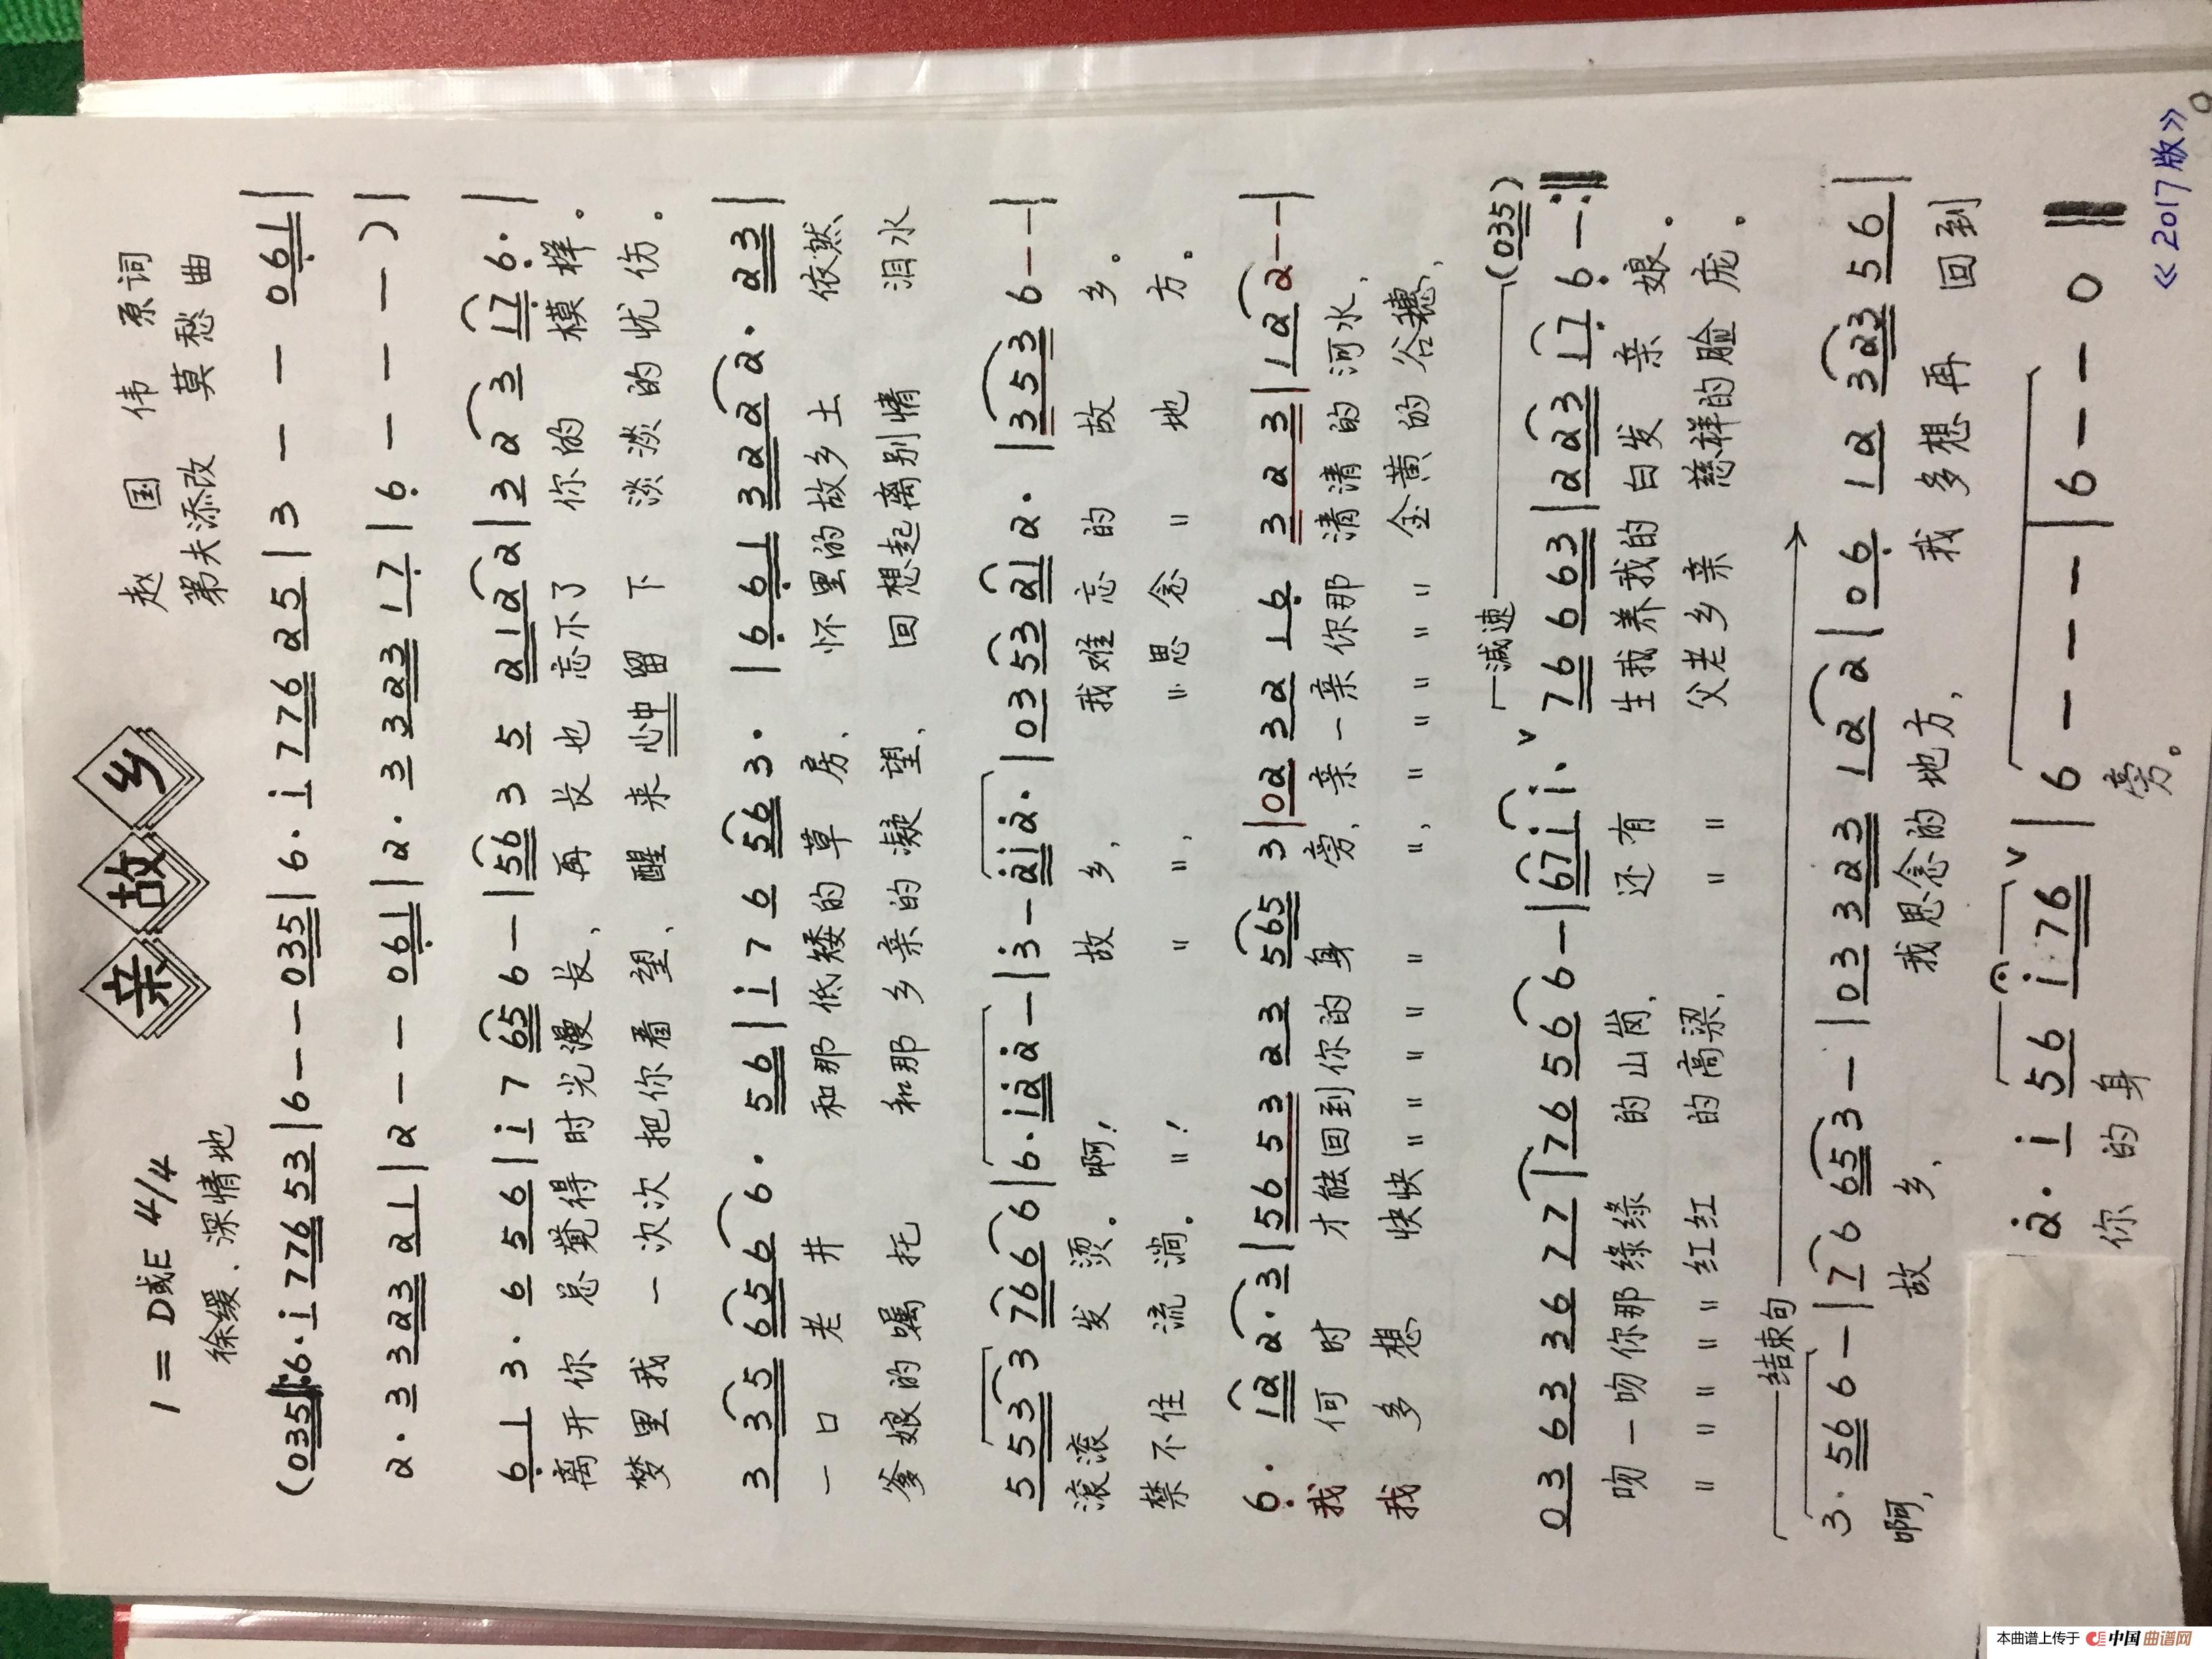 亲故乡
1=D或E 4/4
徐缓、深情地
赵国伟 原词
第夫添改 莫愁 曲
(035‖:6·i 776 53|6--035|6·i 776 25|3---061|
2·3 323 21|2--061|2·3 323 17|6---)|
61 3·6 56|i 7 65 6-|56 3 5 212|3 2 3 17 6·|
离开你 总觉得时光漫长、再长也忘不了你的模样。
梦里我一次次把你看望、醒来心中留下淡淡的忧伤。
3 35 656 6· 56|i 7 6 56 3·|661 322 2· 23|
一口老井 和那低矮的草房、怀里的故乡土 依然
爹娘的嘱托 和那乡亲的凝望、回想起离别情 泪水
5 53 3 766 6|6·i2 2-|3-2i2·|03 53 21 2·|3353 6--|
滚滚发烫。啊!故乡,我难忘的故乡。
禁不住流淌。〃!〃〃,〃〃思念〃地方。
6· 12 2·3|56 53 23 565 3|02 32 16 323|12 2--|
我何时才能回到你的身旁、亲一亲你那清清的河水、
我多想快快〃〃〃〃〃〃,〃〃〃〃〃金黄的谷穗、
减速
03 63 36 77|76 56 6-|67i i·∨76 663|223 17 6-:‖(035)
吻一吻你那绿绿的山岗、还有生我养我的白发亲娘。
〃〃〃〃〃红红的高粱、〃〃父老乡亲慈祥的脸庞。
结束句
3·56 6-|76 653 3-|03 323 12 2|06 12 323 56|
啊,故乡、我思念的地方,我多想再回到
2·i 56 i 76∨|6----|6--0‖
你的身旁。
《2017版》
本曲谱上传于 中国曲谱网